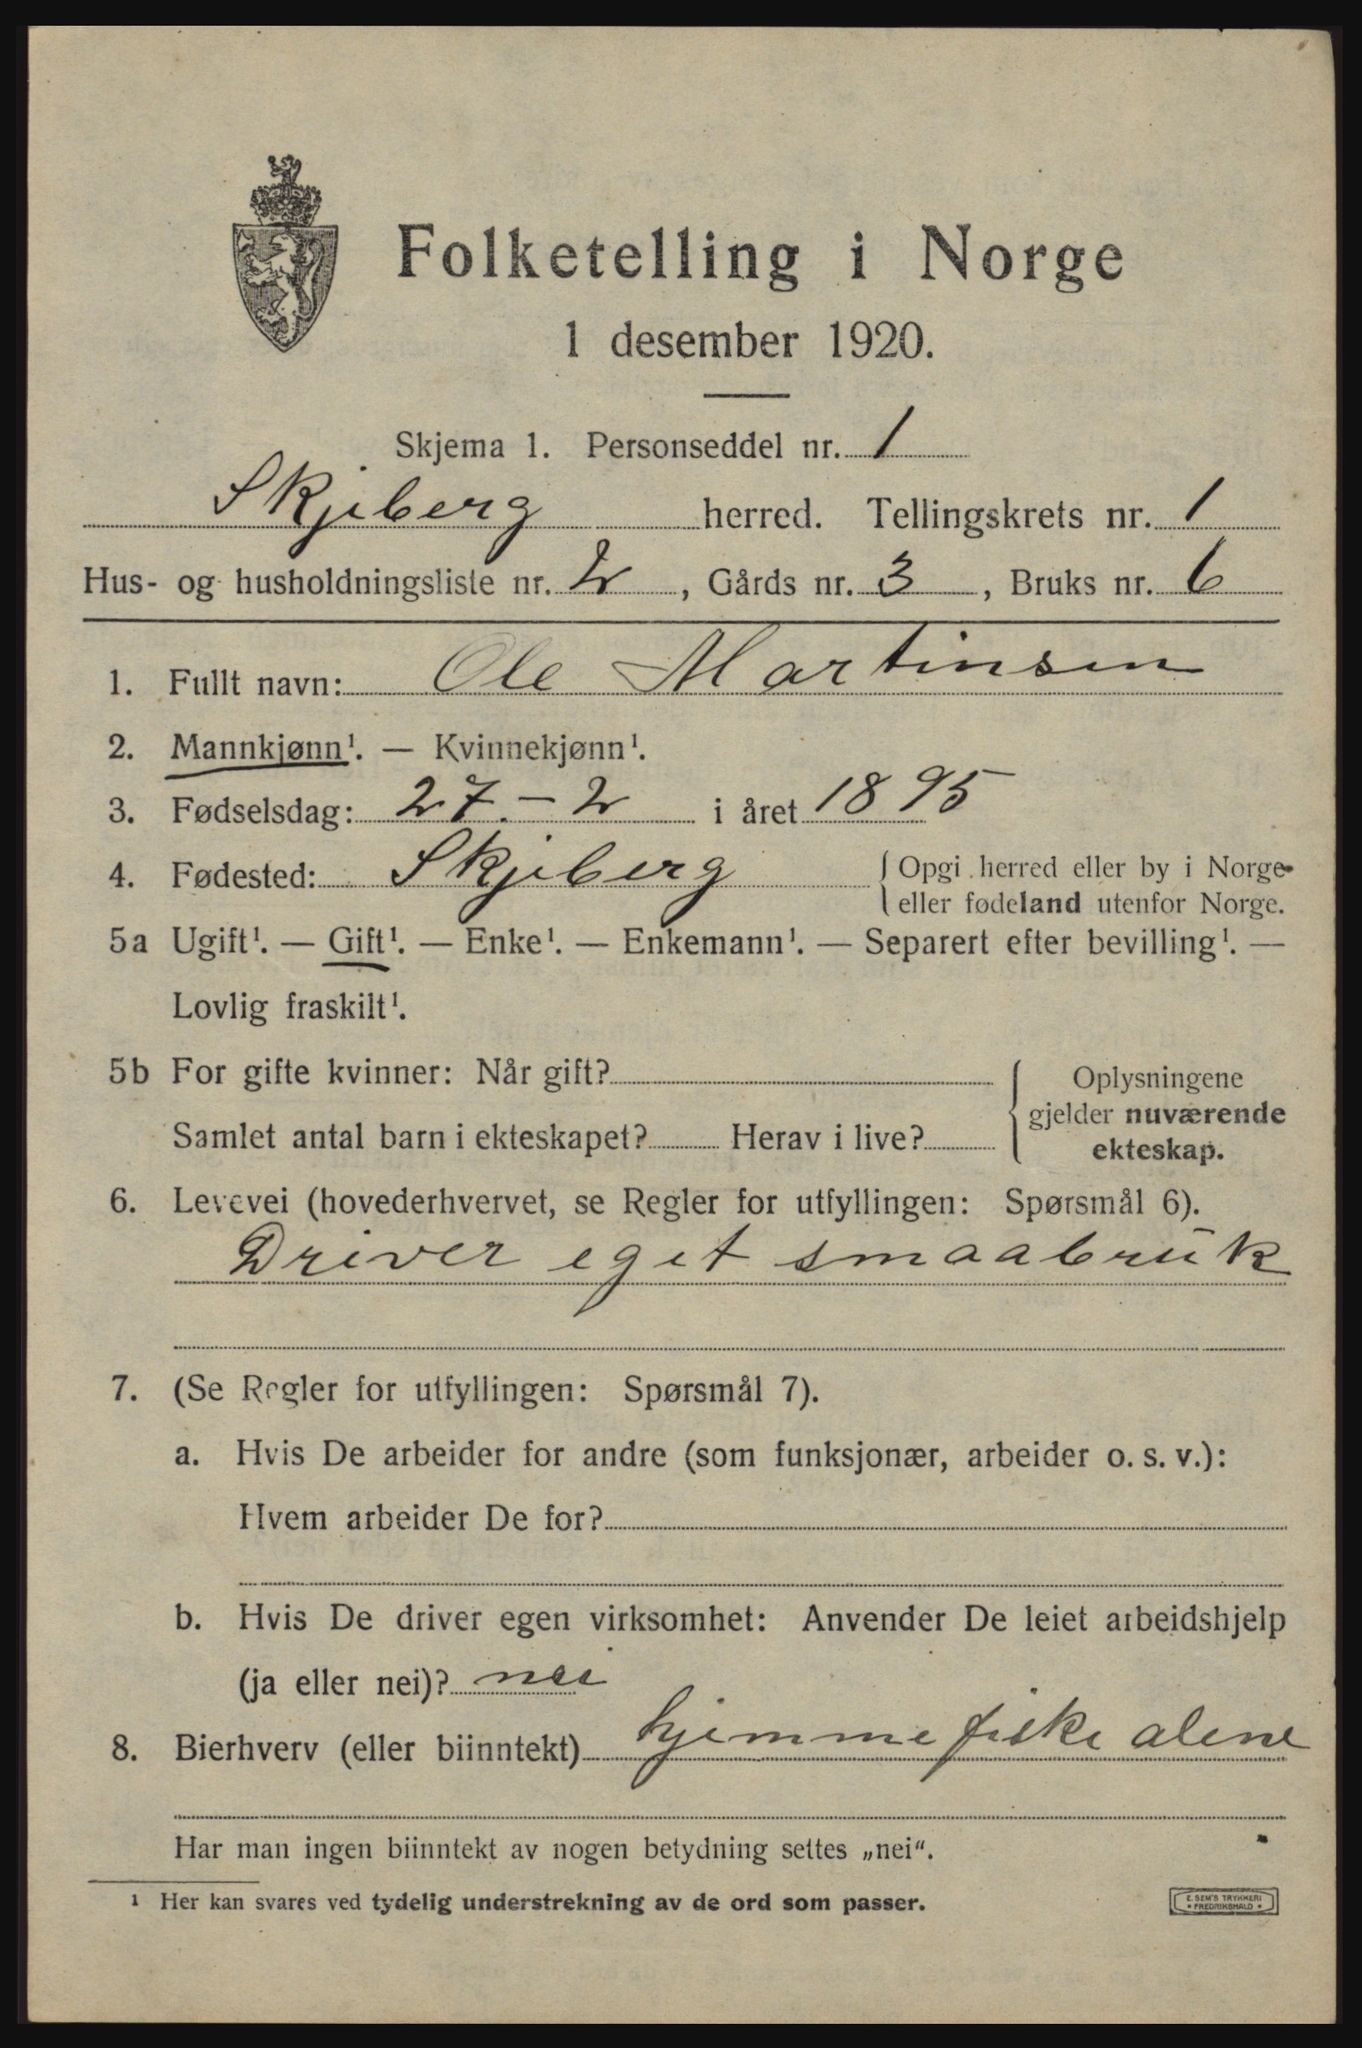 Folketelling i Norge
1 desember 1920.
Skjema 1. Personseddel nr. 1
Skjeberg herred. Tellingskrets nr. 1
Hus- og husholdningsliste nr. 2, Gårds nr. 3, Bruks nr. 6
1. Fullt navn: Ole Martinsen
2. Mannkjønn¹. — Kvinnekjønn¹.
3. Fødselsdag: 27. - 2 i året 1895
4. Fødested: Skjeberg {Opgi herred eller by i Norge
eller fødeland utenfor Norge.
5a Ugift¹. — Gift¹. — Enke¹. — Enkemann¹. — Separert efter bevilling¹. —
Lovlig fraskilt¹.
5b For gifte kvinner: Når gift?
Samlet antal barn i ekteskapet? Herav i live?
Oplysningene
gjelder nuværende
ekteskap.
6. Levevei (hovederhvervet, se Regler for utfyllingen: Spørsmål 6).
Driver eget smaabruk
7. (Se Regler for utfyllingen: Spørsmål 7).
a. Hvis De arbeider for andre (som funksjonær, arbeider o. s. v.):
Hvem arbeider De for?
b. Hvis De driver egen virksomhet: Anvender De leiet arbeidshjelp
(ja eller nei)? nei
8. Bierhverv (eller biinntekt) hjemmefiske alene
Har man ingen biinntekt av nogen betydning settes „nei“.
¹ Her kan svares ved tydelig understrekning av de ord som passer.
E. SEM'S TRYKKERI
• FREDRIKSHALD •